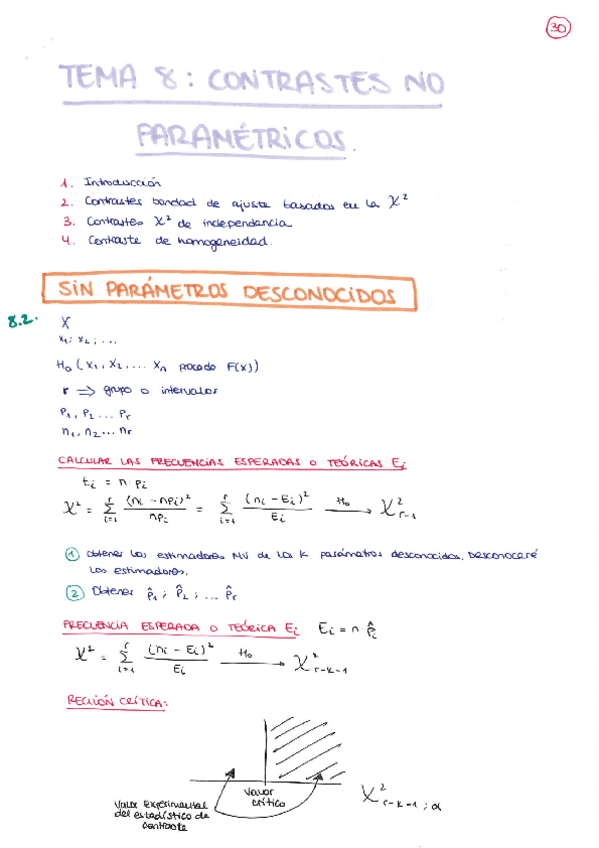 30
TEMA 8: CONTRASTES NO
PARAMÉTRICOS.
1. Introducción
2. Contrastes bondad de ajuste basados en la χ²
3. Contrastes χ² de independencia
4. Contraste de homogeneidad.
SIN PARÁMETROS DESCONOCIDOS
8.2. X
x₁; x₂; ...
H₀ (x₁, x₂, ... xₙ pocado F(x))
r ⇒ grupo o intervalos
p₁, p₂ ... pᵣ
n₁, n₂ ... nᵣ
CALCULAR LAS FRECUENCIAS ESPERADAS O TEÓRICAS Eᵢ
tᵢ = n pᵢ
χ² = Σᵢ₌₁ʳ (nᵢ - npᵢ)² / npᵢ = Σᵢ₌₁ʳ (nᵢ - Eᵢ)² / Eᵢ —H₀→ χ²ᵣ₋₁
① Obtener los estimadores MV de los K parámetros desconocidos. Desconoceré
los estimadores.
② Obtener p̂₁; p̂₂; ... p̂ᵣ
FRECUENCIA ESPERADA O TEÓRICA Eᵢ Eᵢ = n p̂ᵢ
χ² = Σᵢ₌₁ʳ (nᵢ - Eᵢ)² / Eᵢ —H₀→ χ²ᵣ₋ₖ₋₁
REGIÓN CRÍTICA:
Valor
crítico
χ²ᵣ₋ₖ₋₁; α
Valor experimental
del estadístico de
contraste